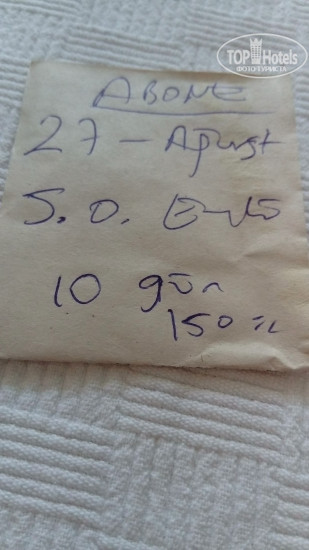 TOPHotels
ФОТО ТУРИСТА
ABONE
27 - Ağust
S.O.
10 gün
150 TL